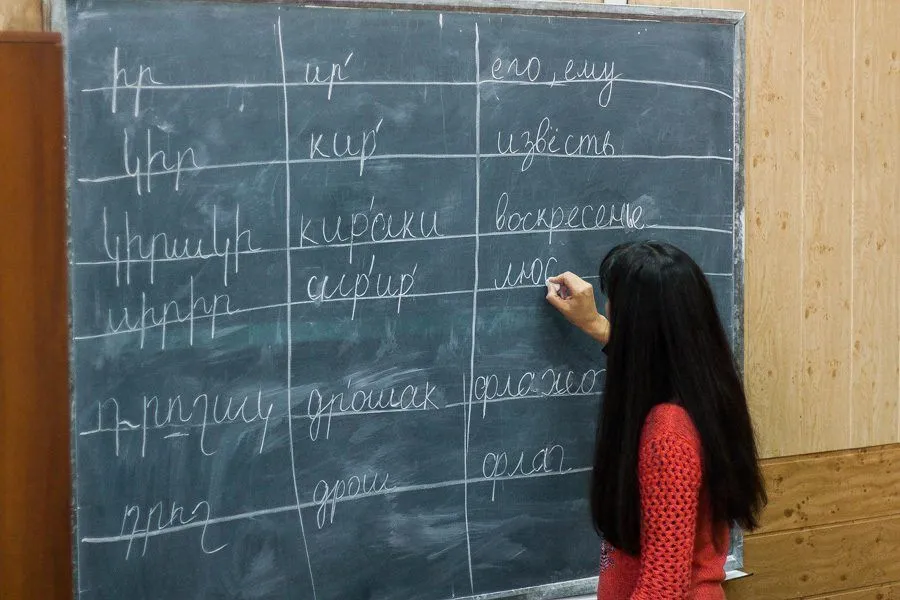 իր ир' его, ему
կիր кир' известь
կիրակի кир'аки воскресенье
սիրիր сир'ир' люс
դրոշակ др'ошак флажо
դրոշ дрош флаг